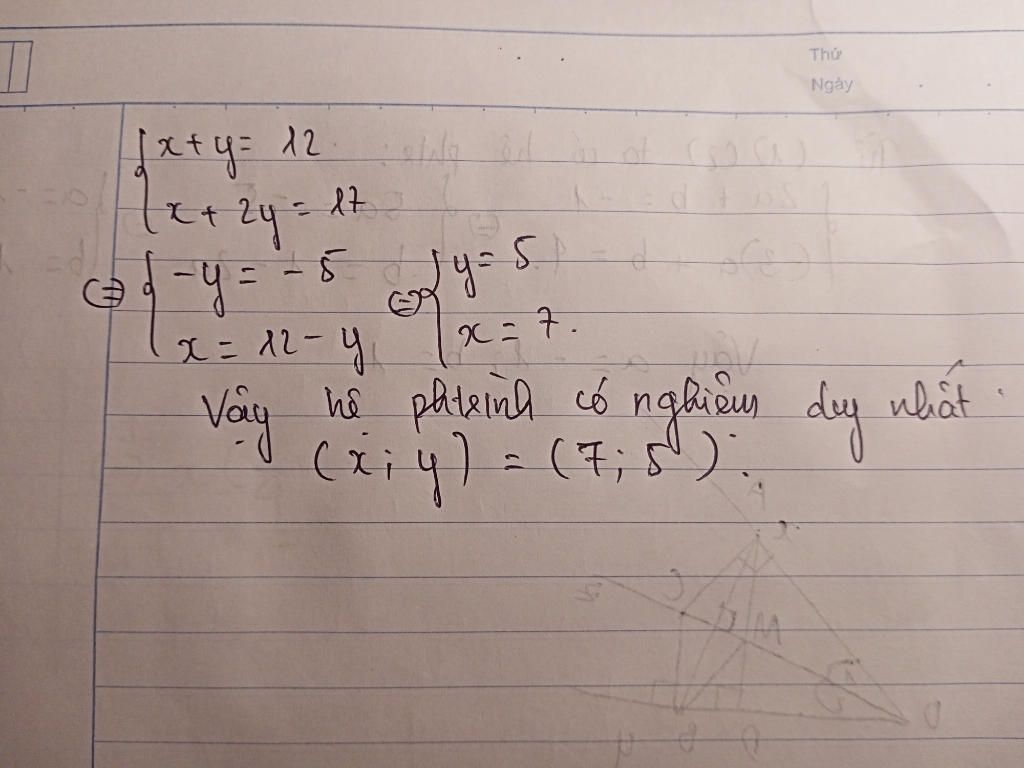 Thứ
Ngày
{ x + y = 12
x + 2y = 17
⇔ { -y = -5 ⇔ { y = 5
x = 12 - y x = 7.
Vậy hệ phtrình có nghiệm duy nhất
(x; y) = (7; 5).